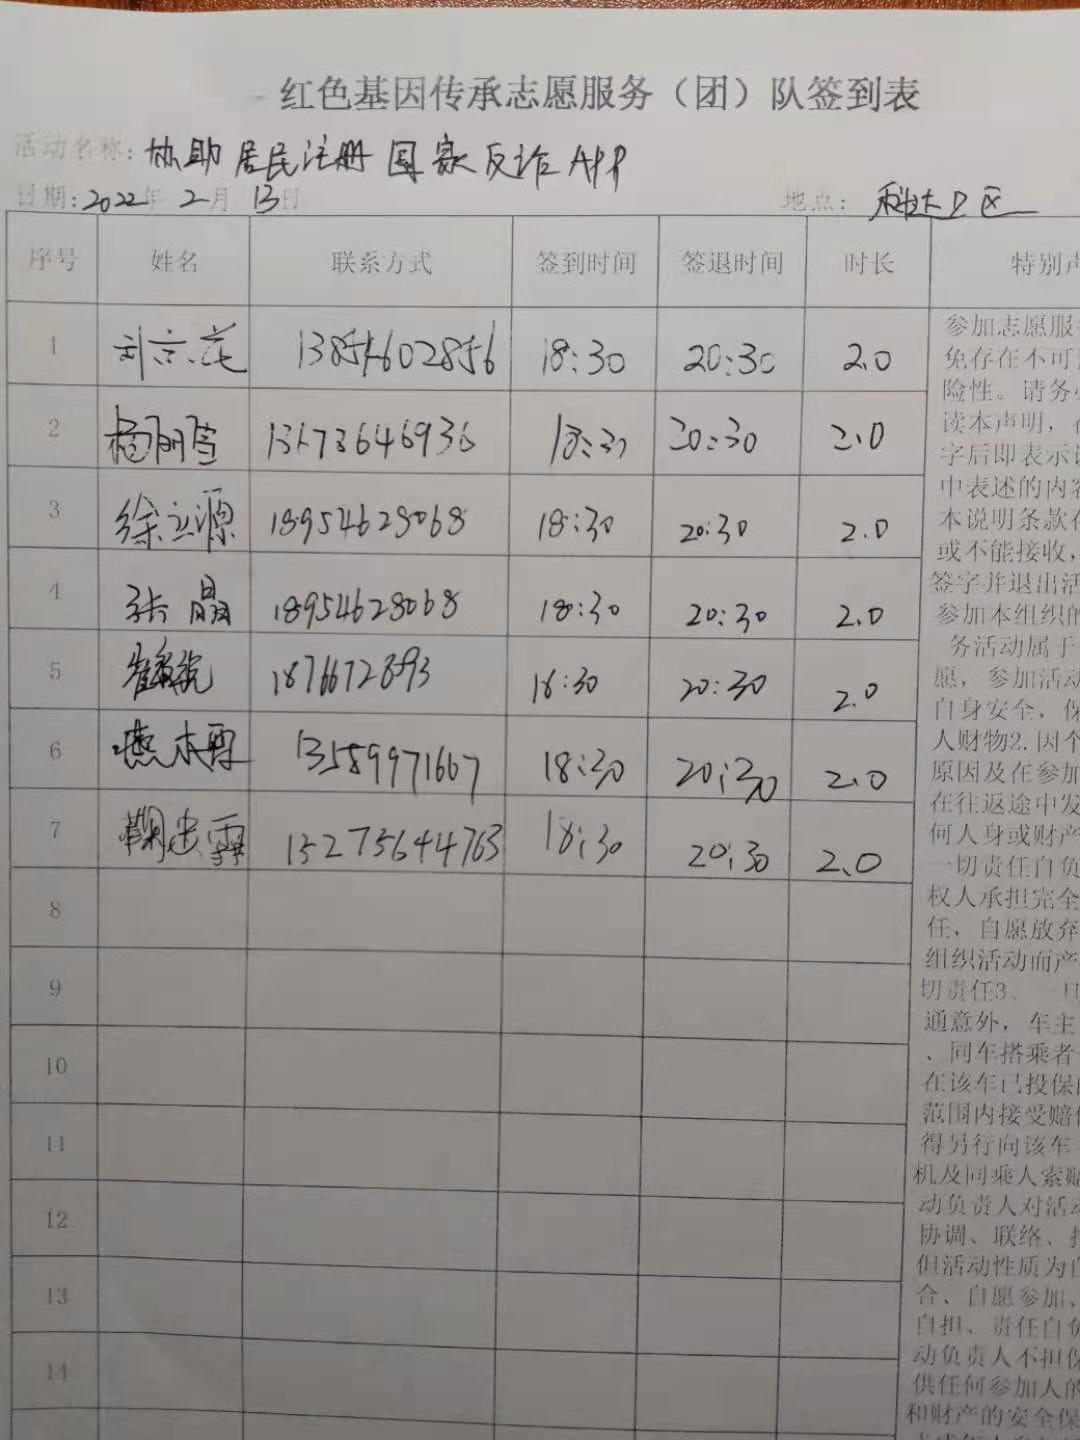 红色基因传承志愿服务（团）队签到表
活动名称: 协助居民注册国家反诈APP
日期: 2022年 2月 13日 地点: 科达D区
序号 姓名 联系方式 签到时间 签退时间 时长 特别声
1 刘京花 13854602856 18:30 20:30 2.0
2 杨丽萱 18:30 20:30 2.0
3 徐立源 18954628068 18:30 20:30 2.0
4 张晶 18954628068 18:30 20:30 2.0
5 18:30 20:30 2.0
6 燕本 13589971667 18:30 20:30 2.0
7 鞠忠霞 15275644763 18:30 20:30 2.0
8
9
10
11
12
13
14
参加志愿服
免存在不可
险性。请务
读本声明，
字后即表示
中表述的内容
本说明条款
或不能接收，
签字并退出活
参加本组织的
务活动属于
愿，参加活动
自身安全，保
人财物2.因个
原因及在参加
在往返途中发
何人身或财产
一切责任自负
权人承担完全
任，自愿放弃
组织活动而产
切责任3、一旦
通意外，车主
、同车搭乘者
在该车已投保
范围内接受赔
得另行向该车
机及同乘人索赔
动负责人对活动
协调、联络、
但活动性质为自
合、自愿参加、
自担、责任自负
动负责人不担保
供任何参加人的
和财产的安全保